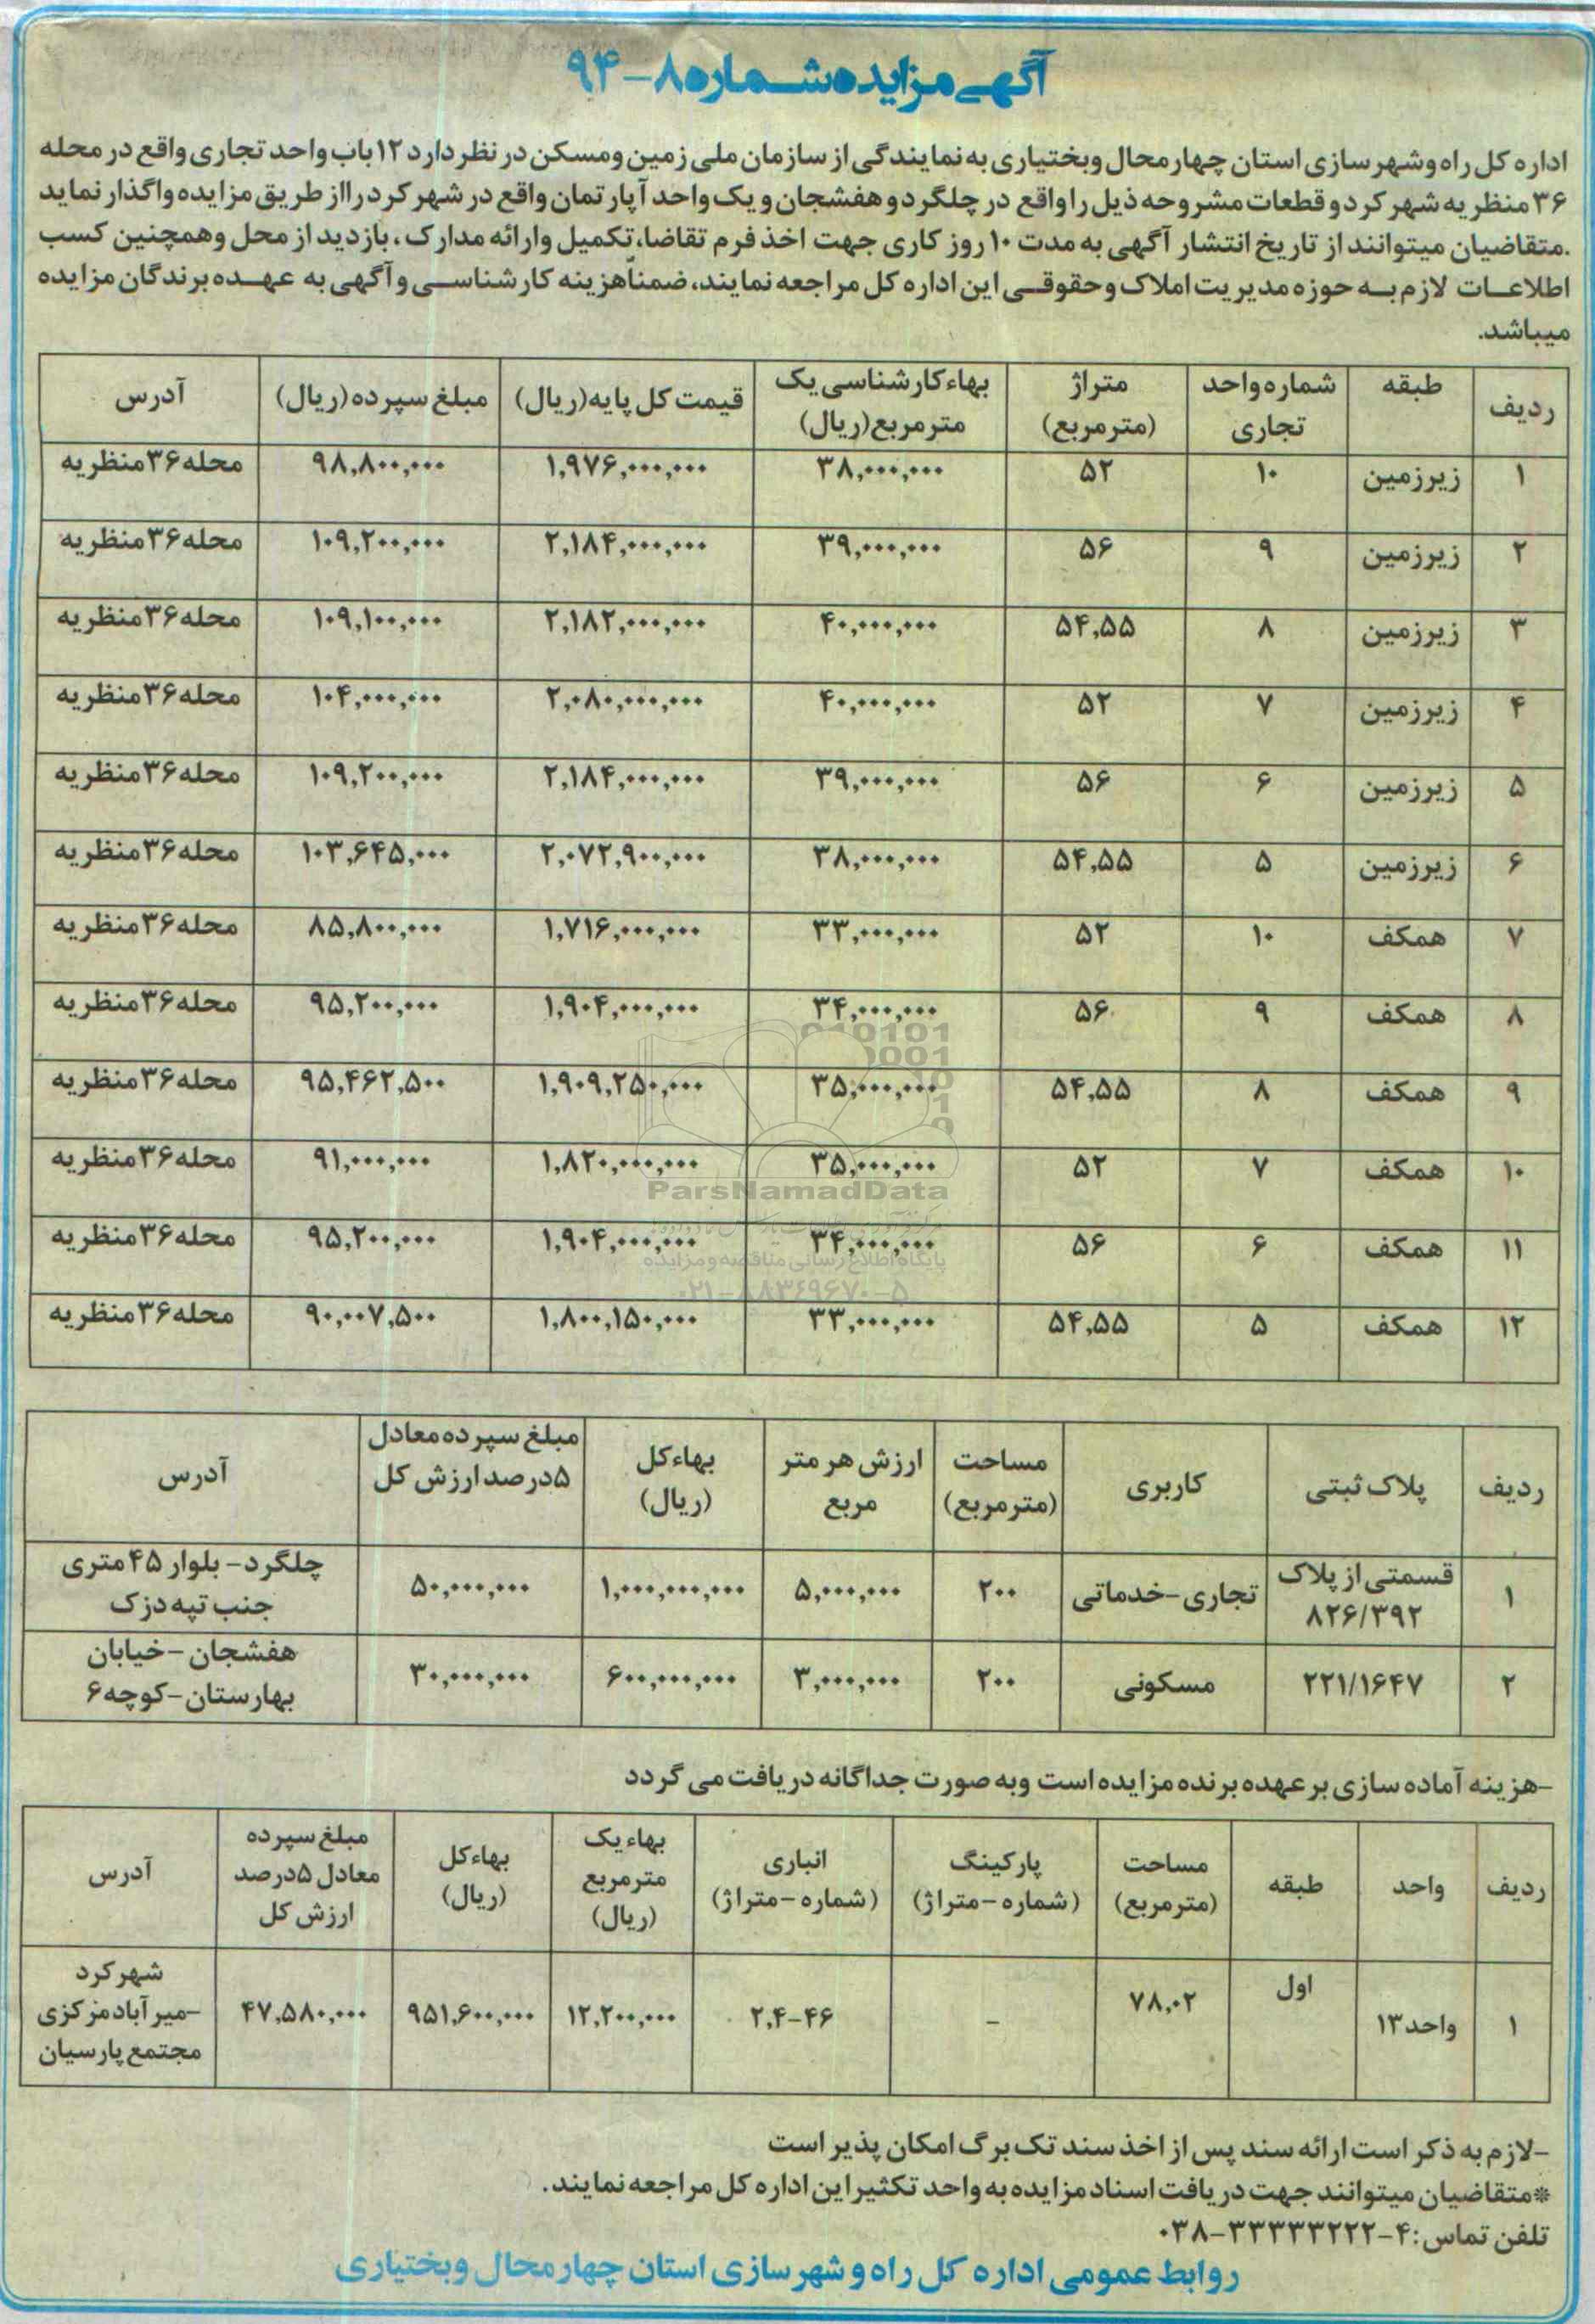 آگهی مزایده شماره ۸-۹۴
اداره کل راه وشهرسازی استان چهارمحال وبختیاری به نمایندگی از سازمان ملی زمین ومسکن در نظر دارد ۱۲ باب واحد تجاری واقع در محله
۳۶ منظریه شهرکرد و قطعات مشروحه ذیل را واقع در چلگرد و هفشجان و یک واحد آپارتمان واقع در شهرکرد را از طریق مزایده واگذار نماید
.متقاضیان میتوانند از تاریخ انتشار آگهی به مدت ۱۰ روز کاری جهت اخذ فرم تقاضا، تکمیل وارائه مدارک، بازدید از محل وهمچنین کسب
اطلاعات لازم به حوزه مدیریت املاک وحقوقی این اداره کل مراجعه نمایند، ضمناً هزینه کارشناسی و آگهی به عهده برندگان مزایده
میباشد.
ردیف | طبقه | شماره واحد تجاری | متراژ (مترمربع) | بهاءکارشناسی یک مترمربع(ریال) | قیمت کل پایه(ریال) | مبلغ سپرده(ریال) | آدرس
۱ | زیرزمین | ۱۰ | ۵۲ | ۳۸,۰۰۰,۰۰۰ | ۱,۹۷۶,۰۰۰,۰۰۰ | ۹۸,۸۰۰,۰۰۰ | محله ۳۶ منظریه
۲ | زیرزمین | ۹ | ۵۶ | ۳۹,۰۰۰,۰۰۰ | ۲,۱۸۴,۰۰۰,۰۰۰ | ۱۰۹,۲۰۰,۰۰۰ | محله ۳۶ منظریه
۳ | زیرزمین | ۸ | ۵۴,۵۵ | ۴۰,۰۰۰,۰۰۰ | ۲,۱۸۲,۰۰۰,۰۰۰ | ۱۰۹,۱۰۰,۰۰۰ | محله ۳۶ منظریه
۴ | زیرزمین | ۷ | ۵۲ | ۴۰,۰۰۰,۰۰۰ | ۲,۰۸۰,۰۰۰,۰۰۰ | ۱۰۴,۰۰۰,۰۰۰ | محله ۳۶ منظریه
۵ | زیرزمین | ۶ | ۵۶ | ۳۹,۰۰۰,۰۰۰ | ۲,۱۸۴,۰۰۰,۰۰۰ | ۱۰۹,۲۰۰,۰۰۰ | محله ۳۶ منظریه
۶ | زیرزمین | ۵ | ۵۴,۵۵ | ۳۸,۰۰۰,۰۰۰ | ۲,۰۷۲,۹۰۰,۰۰۰ | ۱۰۳,۶۴۵,۰۰۰ | محله ۳۶ منظریه
۷ | همکف | ۱۰ | ۵۲ | ۳۳,۰۰۰,۰۰۰ | ۱,۷۱۶,۰۰۰,۰۰۰ | ۸۵,۸۰۰,۰۰۰ | محله ۳۶ منظریه
۸ | همکف | ۹ | ۵۶ | ۳۴,۰۰۰,۰۰۰ | ۱,۹۰۴,۰۰۰,۰۰۰ | ۹۵,۲۰۰,۰۰۰ | محله ۳۶ منظریه
۹ | همکف | ۸ | ۵۴,۵۵ | ۳۵,۰۰۰,۰۰۰ | ۱,۹۰۹,۲۵۰,۰۰۰ | ۹۵,۴۶۲,۵۰۰ | محله ۳۶ منظریه
۱۰ | همکف | ۷ | ۵۲ | ۳۵,۰۰۰,۰۰۰ | ۱,۸۲۰,۰۰۰,۰۰۰ | ۹۱,۰۰۰,۰۰۰ | محله ۳۶ منظریه
۱۱ | همکف | ۶ | ۵۶ | ۳۴,۰۰۰,۰۰۰ | ۱,۹۰۴,۰۰۰,۰۰۰ | ۹۵,۲۰۰,۰۰۰ | محله ۳۶ منظریه
۱۲ | همکف | ۵ | ۵۴,۵۵ | ۳۳,۰۰۰,۰۰۰ | ۱,۸۰۰,۱۵۰,۰۰۰ | ۹۰,۰۰۷,۵۰۰ | محله ۳۶ منظریه
ParsNamadData
پایگاه اطلاع رسانی مناقصه و مزایده
۰۲۱-۸۸۳۴۹۶۷۰-۵
ردیف | پلاک ثبتی | کاربری | مساحت (مترمربع) | ارزش هر متر مربع | بهاءکل (ریال) | مبلغ سپرده معادل ۵درصد ارزش کل | آدرس
۱ | قسمتی از پلاک ۸۲۶/۳۹۲ | تجاری-خدماتی | ۲۰۰ | ۵,۰۰۰,۰۰۰ | ۱,۰۰۰,۰۰۰,۰۰۰ | ۵۰,۰۰۰,۰۰۰ | چلگرد- بلوار ۴۵ متری جنب تپه دزک
۲ | ۲۲۱/۱۶۴۷ | مسکونی | ۲۰۰ | ۳,۰۰۰,۰۰۰ | ۶۰۰,۰۰۰,۰۰۰ | ۳۰,۰۰۰,۰۰۰ | هفشجان -خیابان بهارستان-کوچه ۶
-هزینه آماده سازی بر عهده برنده مزایده است وبه صورت جداگانه دریافت می گردد
ردیف | واحد | طبقه | مساحت (مترمربع) | پارکینگ (شماره -متراژ) | انباری (شماره -متراژ) | بهاءیک مترمربع (ریال) | بهاءکل (ریال) | مبلغ سپرده معادل ۵درصد ارزش کل | آدرس
۱ | واحد ۱۳ | اول | ۷۸,۰۲ | - | ۲,۴-۴۶ | ۱۲,۲۰۰,۰۰۰ | ۹۵۱,۶۰۰,۰۰۰ | ۴۷,۵۸۰,۰۰۰ | شهرکرد -میرآباد مرکزی مجتمع پارسیان
-لازم به ذکر است ارائه سند پس از اخذ سند تک برگ امکان پذیر است
*متقاضیان میتوانند جهت دریافت اسناد مزایده به واحد تکثیر این اداره کل مراجعه نمایند.
تلفن تماس: ۴-۳۳۳۳۳۲۲۲-۰۳۸
روابط عمومی اداره کل راه و شهرسازی استان چهارمحال وبختیاری